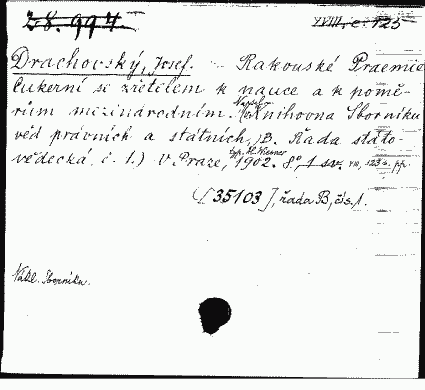 28.994. XVIII, c. 125
Drachovský, Josef. Rakouské Praemie
Cukerní se zřetelem k nauce a k pomě-
rům mezinárodním. (Knihovna Sborníku
věd právních a státních, B. Řada státo-
vědecká, č. 1.) V Praze, typ. Al. Wiesner 1902. 8° 1 sv. VIII, 123 s. pp.
[35103], řada B, čís. 1.
Nákl. Sborníku.